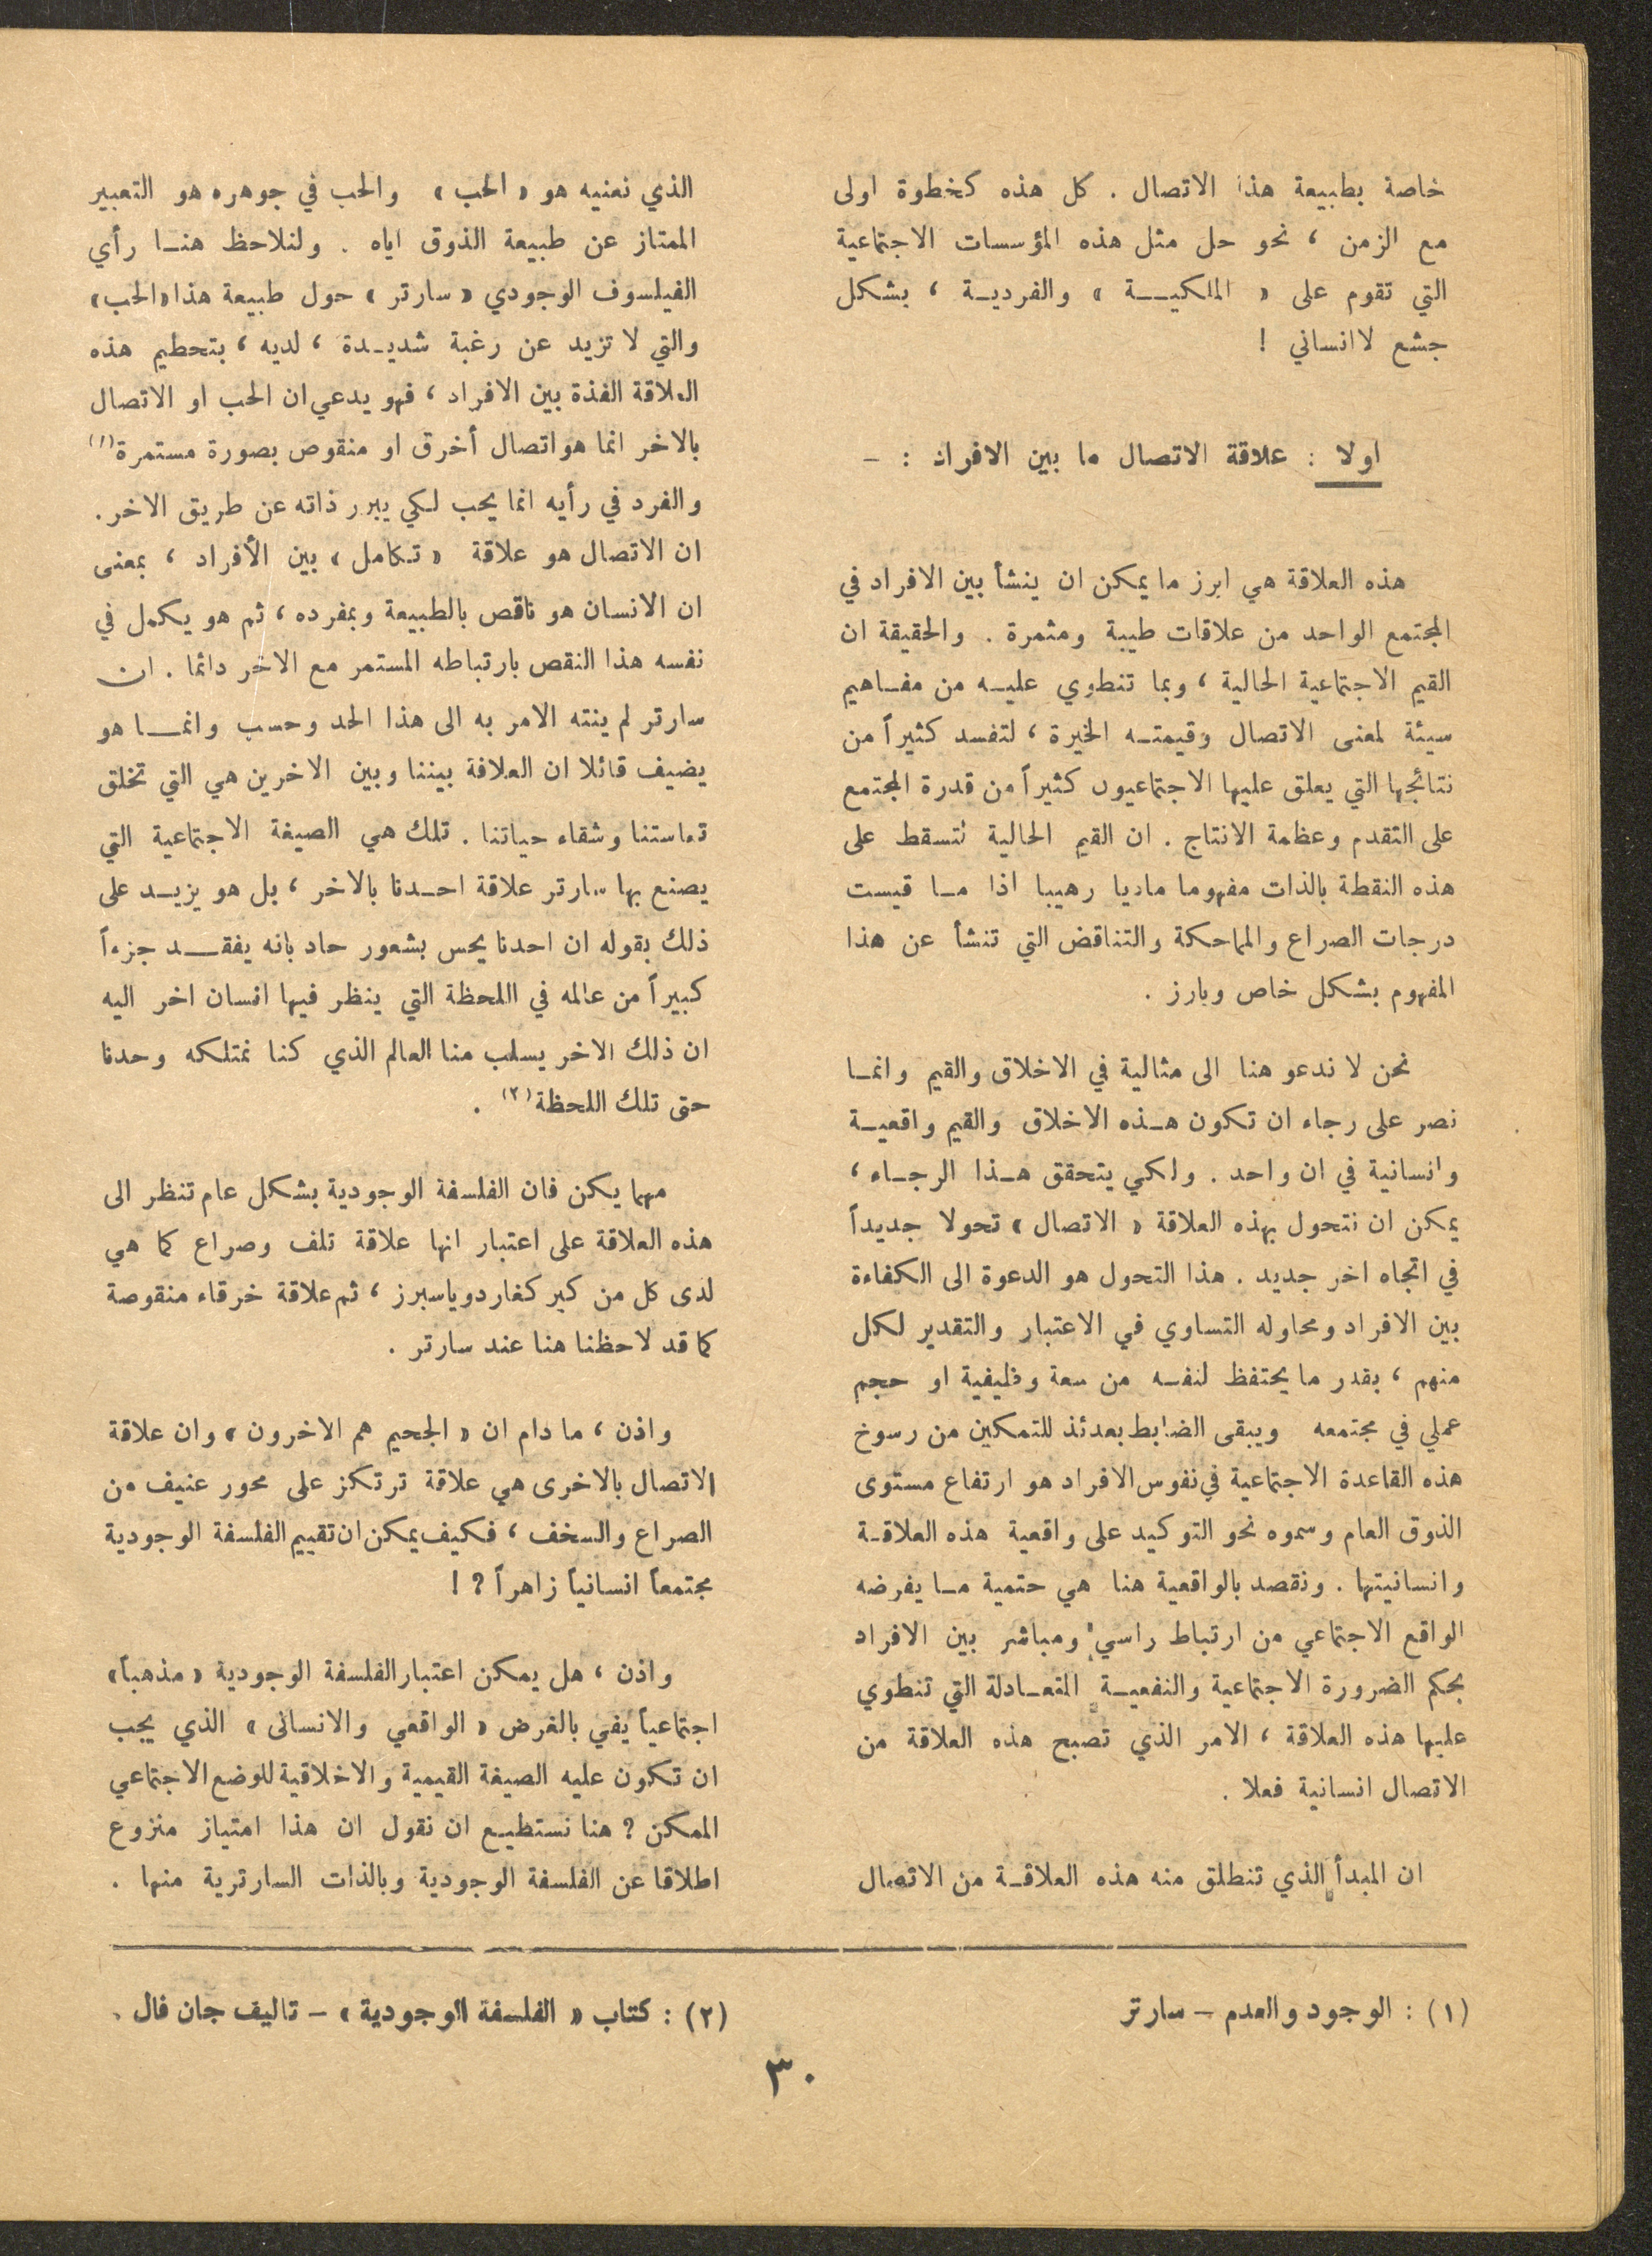 خاصة بطبيعة هذا الاتصال . كل هذه كخطوة اولى
مع الزمن ، نحو حل مثل هذه المؤسسات الاجتماعية
التي تقوم على « الملكية » والفردية ، بشكل
جشع لا انساني !
اولا : علاقة الاتصال ما بين الافراد : –
هذه العلاقة هي ابرز ما يمكن ان ينشأ بين الافراد في
المجتمع الواحد من علاقات طيبة ومثمرة . والحقيقة ان
القيم الاجتماعية الحالية ، وبما تنطوي عليه من مفاهيم
سيئة لمعنى الاتصال وقيمته الخيرة ، لتفسد كثيراً من
نتائجها التي يعلق عليها الاجتماعيون كثيراً من قدرة المجتمع
على التقدم وعظمة الانتاج . ان القيم الحالية لتسقط على
هذه النقطة بالذات مفهوما ماديا رهيبا اذا ما قيست
درجات الصراع والمماحكة والتناقض التي تنشأ عن هذا
المفهوم بشكل خاص وبارز .
نحن لا ندعو هنا الى مثالية في الاخلاق والقيم وانما
نصر على رجاء ان تكون هذه الاخلاق والقيم واقعية
وانسانية في ان واحد . ولكي يتحقق هذا الرجاء ،
يمكن ان نتحول بهذه العلاقة « الاتصال » تحولا جديداً
في اتجاه اخر جديد . هذا التحول هو الدعوة الى الكفاءة
بين الافراد ومحاوله التساوي في الاعتبار والتقدير لكل
منهم ، بقدر ما يحتفظ لنفسه من سعة وظيفية او حجم
عملي في مجتمعه ويبقى الضابط بعدئذ للتمكين من رسوخ
هذه القاعدة الاجتماعية في نفوس الافراد هو ارتفاع مستوى
الذوق العام وسموه نحو التوكيد على واقعية هذه العلاقة
وانسانيتها . ونقصد بالواقعية هنا هي حتمية ما يفرضه
الواقع الاجتماعي من ارتباط راسي ومباشر بين الافراد
بحكم الضرورة الاجتماعية والنفعية المتعادلة التي تنطوي
عليها هذه العلاقة ، الامر الذي تصبح هذه العلاقة من
الاتصال انسانية فعلا .
ان المبدأ الذي تنطلق منه هذه العلاقة من الاتصال
الذي نعنيه هو « الحب » والحب في جوهره هو التعبير
الممتاز عن طبيعة الذوق اياه . ولنلاحظ هنا رأي
الفيلسوف الوجودي « سارتر » حول طبيعة هذا «الحب»
والتي لا تزيد عن رغبة شديدة ، لديه ، بتحطيم هذه
العلاقة الفذة بين الافراد ، فهو يدعي ان الحب او الاتصال
بالاخر انما هو اتصال أخرق او منقوص بصورة مستمرة (١)
والفرد في رأيه انما يحب لكي يبرر ذاته عن طريق الاخر.
ان الاتصال هو علاقة « تكامل » بين الأفراد ، بمعنى
ان الانسان هو ناقص بالطبيعة وبمفرده ، ثم هو يكمل في
نفسه هذا النقص بارتباطه المستمر مع الاخر دائما . ان
سارتر لم ينته الامر به الى هذا الحد وحسب وانما هو
يضيف قائلا ان العلاقة بيننا وبين الاخرين هي التي تخلق
تعاستنا وشقاء حياتنا . تلك هي الصيغة الاجتماعية التي
يصنع بها سارتر علاقة احدنا بالاخر ، بل هو يزيد على
ذلك بقوله ان احدنا يحس بشعور حاد بانه يفقد جزءاً
كبيراً من عالمه في اللحظة التي ينظر فيها انسان اخر اليه
ان ذلك الاخر يسلب منا العالم الذي كنا نمتلكه وحدنا
حتى تلك اللحظة (٢) .
مهما يكن فان الفلسفة الوجودية بشكل عام تنظر الى
هذه العلاقة على اعتبار انها علاقة تلف وصراع كما هي
لدى كل من كير كغارد وياسبرز ، ثم علاقة خرقاء منقوصة
كما قد لاحظنا هنا عند سارتر .
واذن ، ما دام ان « الجحيم هم الاخرون » وان علاقة
الاتصال بالاخرى هي علاقة ترتكز على محور عنيف من
الصراع والسخف ، فكيف يمكن ان تقييم الفلسفة الوجودية
مجتمعاً انسانياً زاهراً ? !
واذن ، هل يمكن اعتبار الفلسفة الوجودية « مذهباً »
اجتماعياً يفي بالغرض « الواقعي والانسانى » الذي يجب
ان تكون عليه الصيغة القيمية والاخلاقية للوضع الاجتماعي
الممكن ? هنا نستطيع ان نقول ان هذا امتياز منزوع
اطلاقا عن الفلسفة الوجودية وبالذات السارترية منها .
(١) : الوجود والعدم – سارتر
(٢) : كتاب « الفلسفة الوجودية » – تاليف جان فال .
٣٠